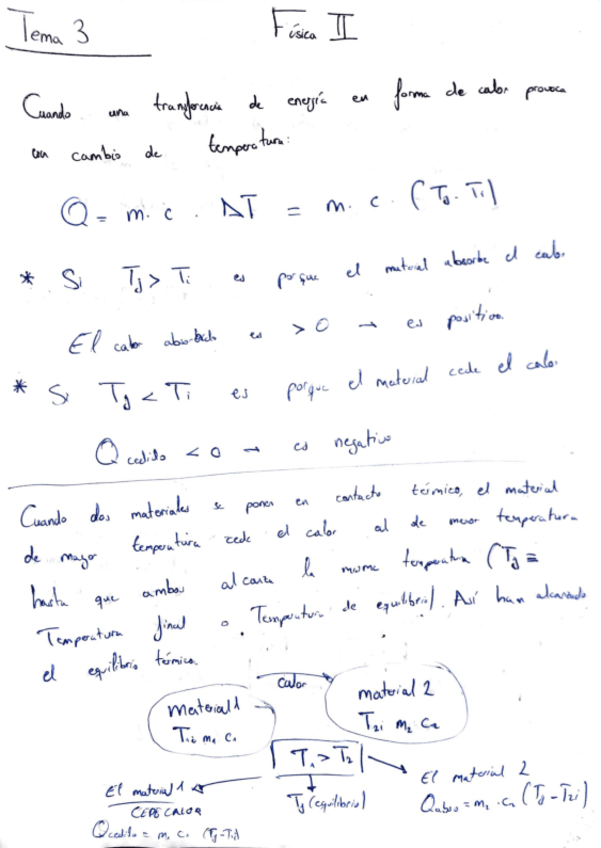 Tema 3
Física II
Cuando una transferencia de energía en forma de calor provoca
un cambio de temperatura:
Q = m · c · ΔT = m · c · (Tf - Ti)
* Si Tf > Ti es porque el material absorbe el calor
El calor absorbido es > 0 → es positivo.
* Si Tf < Ti es porque el material cede el calor
Q cedido < 0 → es negativo
Cuando dos materiales se ponen en contacto térmico, el material
de mayor temperatura cede el calor al de menor temperatura
hasta que ambos alcanza la misma temperatura (Tf ≡
Temperatura final o Temperatura de equilibrio). Así han alcanzado
el equilibrio térmico.
calor
material 1
T1i m1 c1
material 2
T2i m2 c2
T1 > T2
El material 1
CEDE CALOR
Qcedido = m1 c1 (Tf-T1i)
Tf (equilibrio)
El material 2
Qabso = m2 · c2 (Tf - T2i)